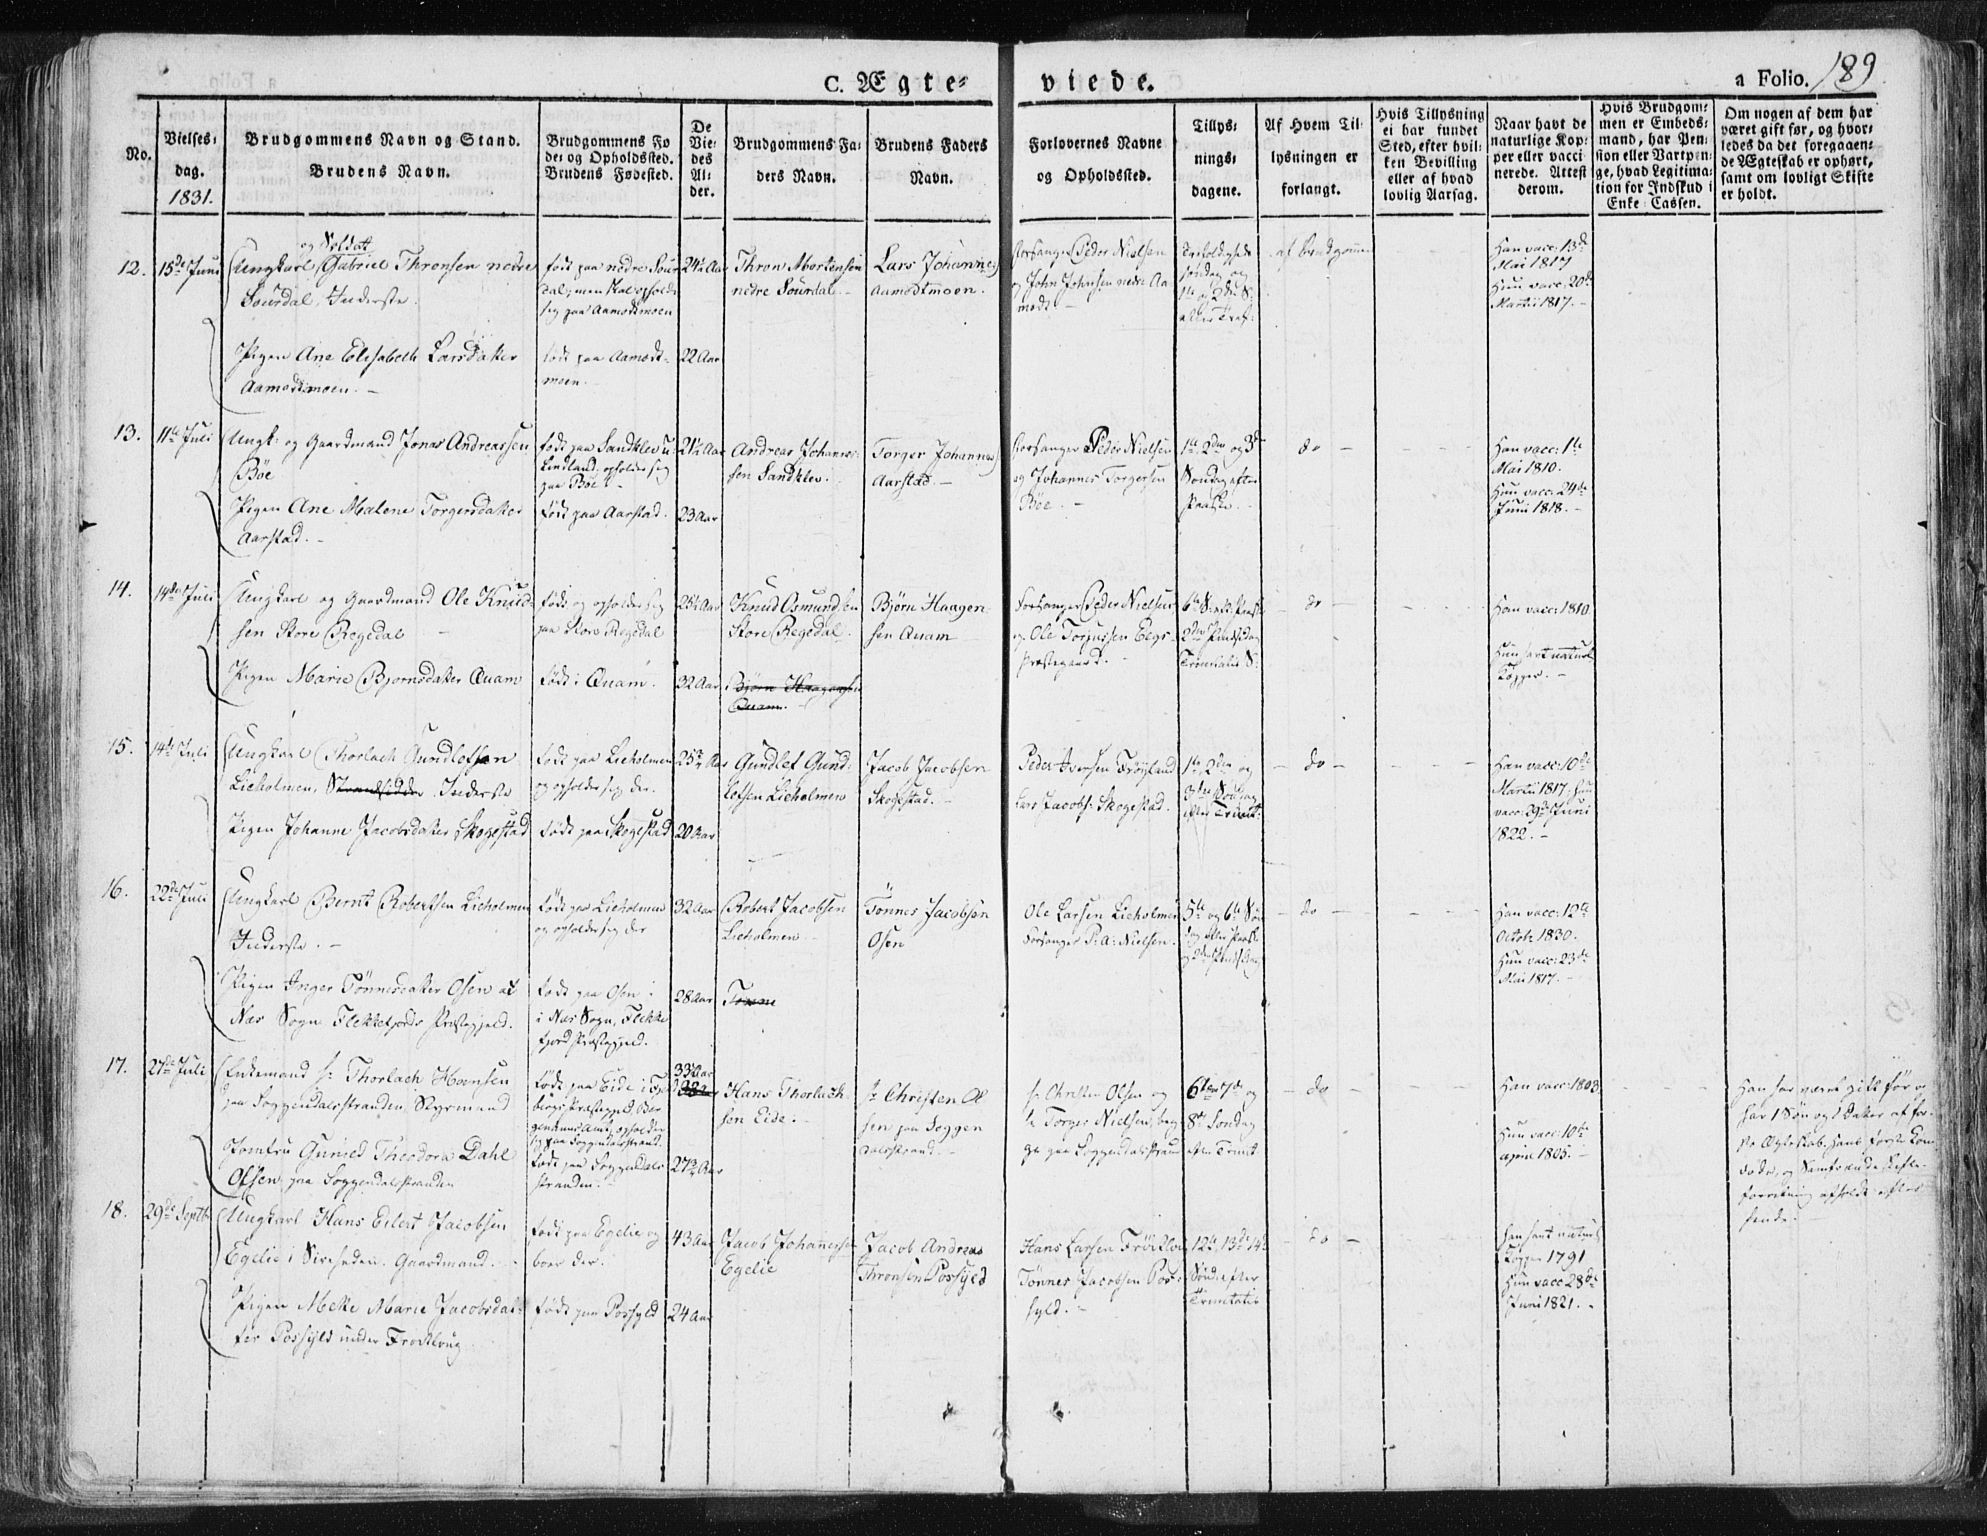 C. Ægte-
viede.
a Folio. 189
No.
Vielses-
dag.
1831.
Brudgommens Navn og Stand.
Brudens Navn.
Brudgommens Fø
de- og Opholdssted.
Brudens Fødested.
De
Vie-
des
Al-
der.
Brudgommens Fa-
ders Navn.
Brudens Faders
Navn.
Forlovernes Navne
og Opholdssted.
Tillys-
nings-
dagene.
Af Hvem Til-
lysningen er
forlangt.
Hvis Tillysning
ei har fundet
Sted, efter hvil-
ken Bevilling
eller af hvad
lovlig Aarsag.
Naar havt de
naturlige Kop-
per eller vacci-
nerede. Attest
derom.
Hvis Brudgom-
men er Embeds-
mand, har Pen-
sion eller Vartpen-
ge, hvad Legitima-
tion for Indskud i
Enke Cassen.
Om nogen af dem har
været gift før, og hvor-
ledes da det foregaaen-
de Ægteskab er ophørt,
samt om lovligt Skifte
er holdt.
12.
15de Juni
og Soldat
Ungkarl Gabriel Thronsen nedre
Sourdal, Inderste.
Pigen Ane Elisabeth Larsdatter
Aamodtmoen. –
født paa nedre Sour
dal, men skal opholde
sig paa Aamodtmoen
født paa Aamodt-
moen.
24½ Aar
22 Aar
Thron Mortensen
nedre Sourdal
Lars Johannes
Aamodtmoen.
Forsanger Peder Nielsen
og John Johnsen nedre Aa
modt –
Søndag og
af Brudgommen
Han vacc: 13de
Mai 1817
Hun vacc: 20de
Martii 1817. –
13.
11te Juli
Ungk: og Gaardmand Jonas Andreassen
Bøe
Pigen Ane Malene Torgersdatter
Aarstad. –
født paa Sandklev u:
Lindland, opholder sig
paa Bøe. –
født paa Aarstad.
21½ Aar
23 Aar
Andreas Johannes-
sen Sandklev.
Torger Johannes
Aarstad. –
Forsanger Peder Nielsen
og Johannes Torgersen
Bøe. –
1te 2den og 3de
Søndag efter
Paaske.
do –
Han vacc: 1te
Mai 1810.
Hun vacc: 24de
Juni 1818. –
14.
14de Juli
Ungkarl og Gaardmand Ole Knud-
sen Store Regedal
Pigen Marie Bjornsdatter Qvam
født og opholder sig
paa Store Regedal
født i Qvam.
25½ Aar
32 Aar
Knud Osmundsen
Store Regedal.
Bjørn Haagensen
Qvam.
Bjørn Haagen-
sen Qvam
Forsanger Peder Nielsen
og Ole Torjussen Eegs-
Præstegaard. –
2den Pindsedag
Trinitatis S:
do –
Han vacc: 1810
Hun havt naturl
Kopper. –
15.
14de Juli
Ungkarl Thorlach Gundlefsen
Lieholmen, Strandsidder Inderste
Pigen Johanne Jacobsdatter Skogestad
født paa Lieholmen
og opholder sig der.
født paa Skogestad
25½ Aar
20 Aar
Gundlef Gund-
lefsen Lieholmen
Jacob Jacobsen
Skogestad. –
Peder Iversen Frøyland
Lars Jacobs: Skogestad.
1te, 2den og
3die Søndag
efter Trinit:
– do –
Han vacc: 10de
Martii 1817. Hun
vacc: 29de Juni
1822. –
16.
22de Juli
Ungkarl Bernt Robertsen Lieholmen
Inderste. –
Pigen Inger Tönnesdatter Osen af
Næs Sogn Flekkefjords Præstegjeld.
født paa Lieholmen
og opholder sig der
født paa Osen i
i Næs Sogn, Flekke
fjord Præstegjeld.
32 Aar
28 Aar
Robert Jacobsen
Lieholmen
Tønne
Tönnes Jacobsen
Osen
Ole Larsen Lieholmen
Forsanger P: A: Nielsen.
5te og 6te Søn
dag efter Paaske
– do –
Han vacc: 12te
Octobr 1830.
Hun vacc: 23de
Mai 1817. –
17.
27de Juli
Enkemand Sr Thorlach Hansen
paa Soggendalsstranden, Styrmand
Jomfru Gunild Theodora Dahl
Olsen paa Soggendalsstranden
født paa Eide i
bergs Præstegjeld, Ber
genhuus Amt, opholder
sig paa Soggendalsstrand.
født paa Soggendals-
stranden. –
33 Aar
27½ Aar
Hans Thorlach-
sen Eide.
Sr Christen Ol
sen paa Soggen
dalsstrand. –
Sr Christen Olsen og
Sr Torger Nielsen, beg-
ge paa Soggendalsstrand
6te 7de og
8de Søndag
efter Trinit
– do –
Han vacc: 1803
Hun vacc: 10de
April 1805. –
Han har været gift før og
har 1 Søn og 1 Datter af før-
ste Ægteskab. Hans første Kone
døde, og Samfrænde Skifte-
forretning afholdt efter
hende. –
18.
29de Septbr
Ungkarl Hans Eilert Jacobsen
Egelie i Sireheden. Gaardmand. –
Pigen Mette Marie Jacobsdat-
ter Possyld under Frøitlaug
født paa Egelie og
boer der.
født paa Possyld
43 Aar
24 Aar
Jacob Johannessen
Egelie
Jacob Andreas
Thronsen Possyld
Hans Larsen
Tønnes Jacobsen Pos-
syld. –
12te, 13de, 14de
Sønd: efter
Trinitatis
– do –
Han havt naturl
Kopper 1791
Hun vacc 28de
Juni 1821. –